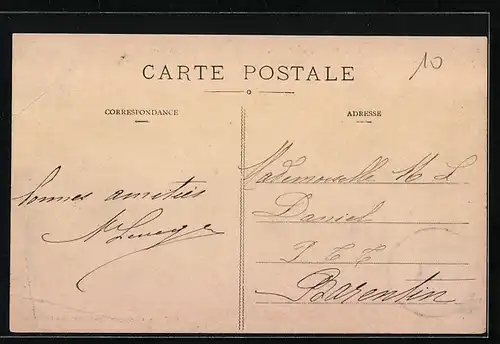 10
CARTE POSTALE
CORRESPONDANCE
ADRESSE
bonnes amitiés
Mademoiselle M L
Daniel
P T T
Barentin